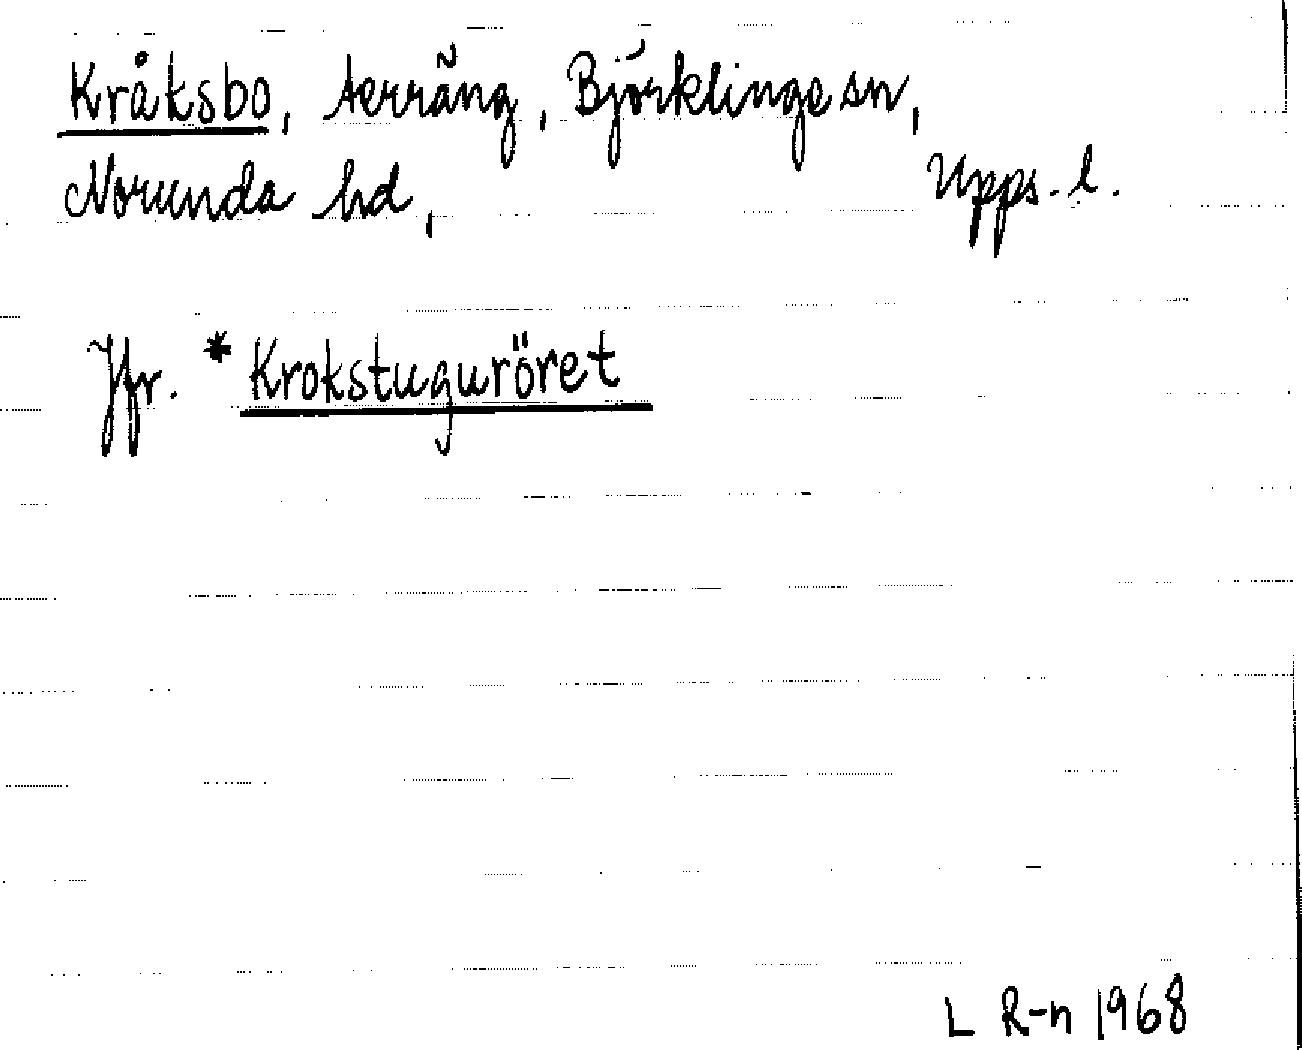 Kråksbo, terräng, Björklinge sn,
Norunda hd, Upps. l.
Jfr. *Krokstuguröret
L R-n 1968